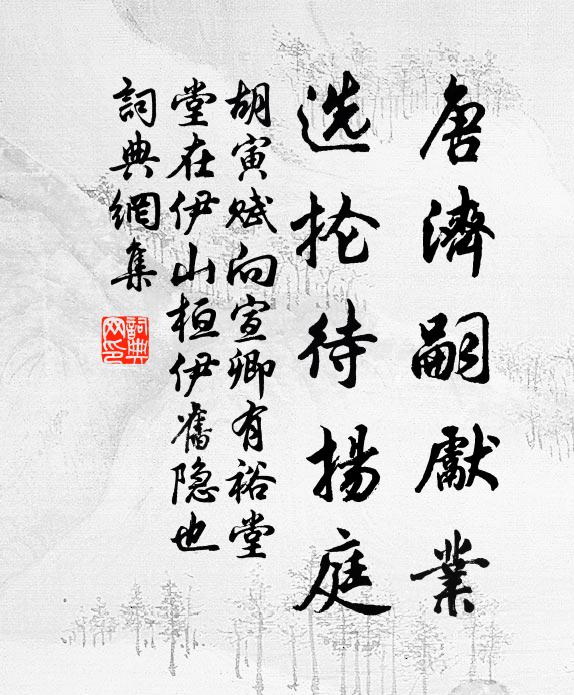 唐濟嗣獻業
选抡待揚庭
胡寅赋向宣卿有裕堂
堂在伊山桓伊舊隐也
詞典網集
詞典网印